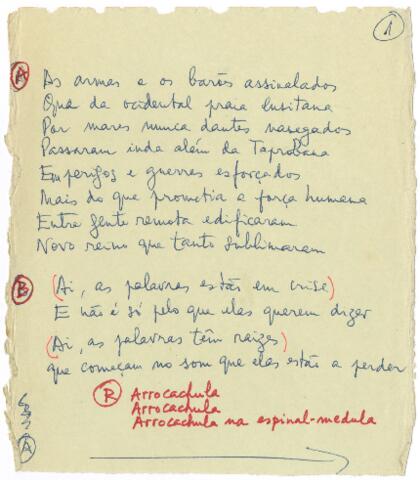 1
A As armas e os barões assinalados
Que da ocidental praia lusitana
Por mares nunca dantes navegados
Passaram inda além da Taprobana
Em perigos e guerras esforçados
Mais do que prometia a força humana
Entre gente remota edificaram
Novo reino que tanto sublimaram
B (Ai, as palavras estão em crise)
E não é só pelo que elas querem dizer
(Ai, as palavras têm raízes)
que começam no som que elas estão a perder
R Arrocachula
Arrocachula
Arrocachula na espinal-medula
A